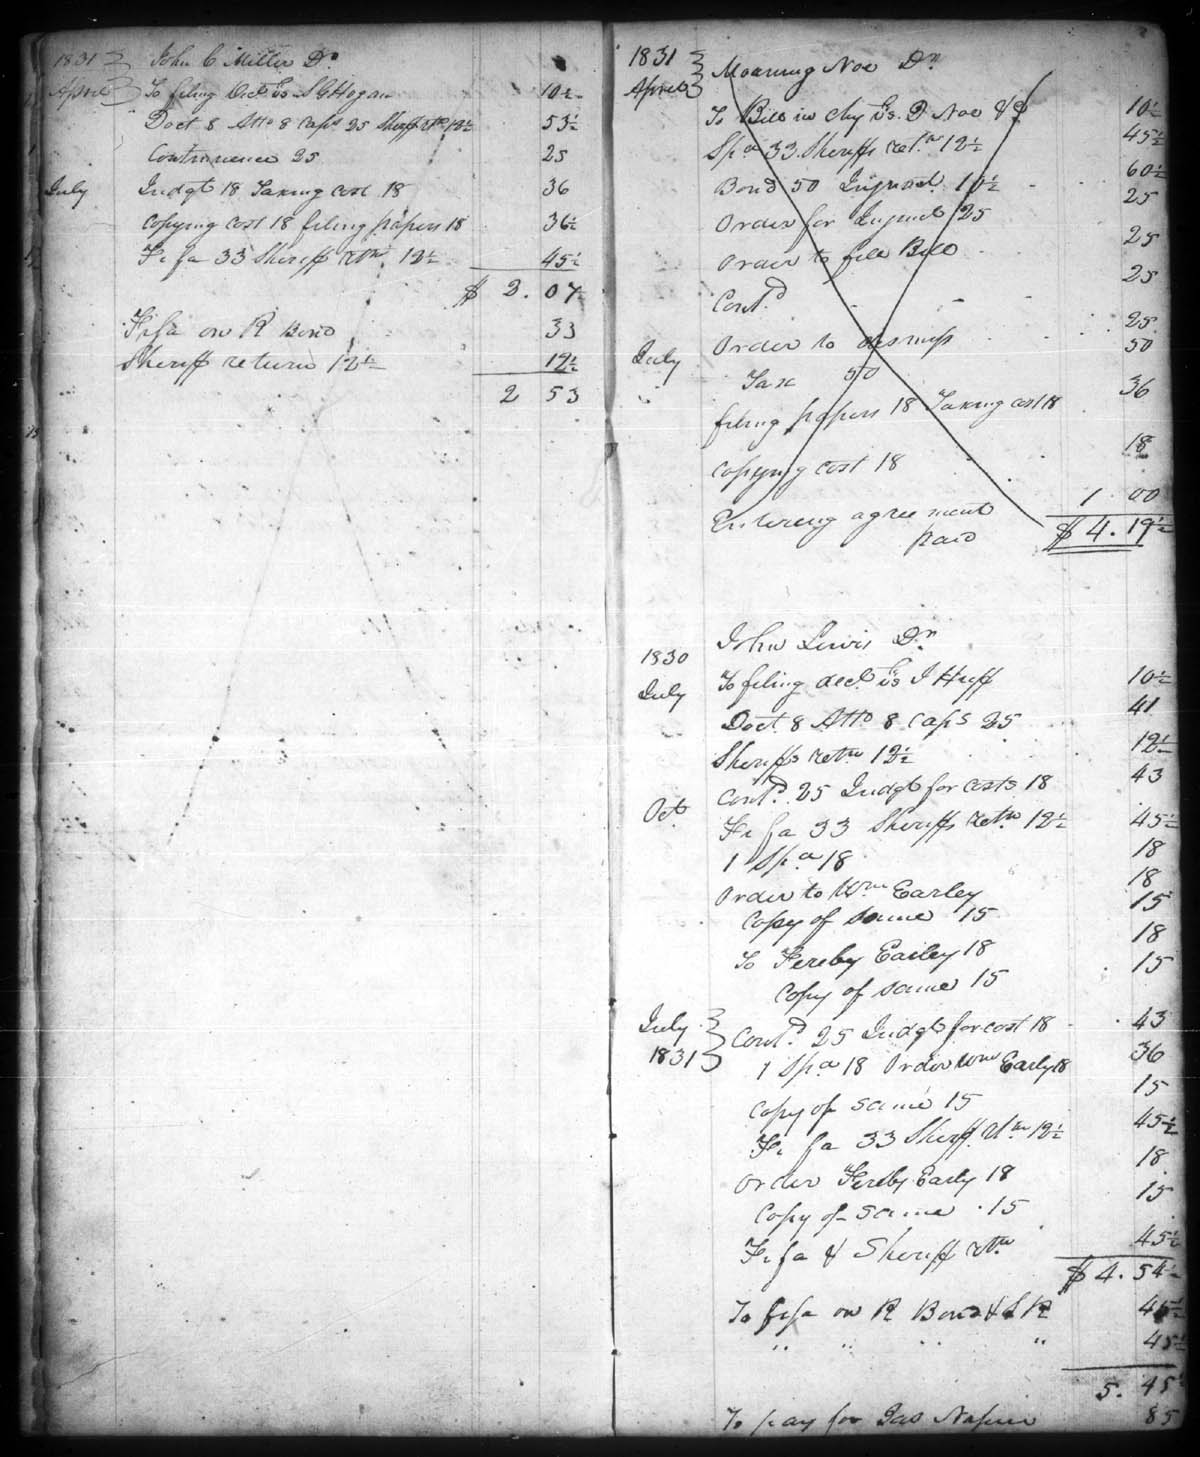 1831 } John C Miller Dr
April } To filing Decl vs S G Hogan 10½
Doct 8 Atto 8 Caps 25 Sheriff rtn 12½ 53½
Continuence 25 25
July Judgt 18 Taxing cost 18 36
Copying cost 18 filing papers 18 36½
Fi fa 33 Sheriff rtn 12½ 45½
$ 2. 07½
Fi fa on R Bond 33
Sheriff return 12½ 12½
2 53
1831 }
April } Moarning Noe Dr
To Bill in Chy vs. D Noe & 10½
Spa 33 Sheriffs ret.n 12½ 45½
Bond 50 Injunct. 10½ 60½
Order for Injunct 25 25
Order to file Bill 25
Cont.d 25
July Order to dismiss 25
Tax 50 50
filing papers 18 Taxing cost 18 36
Copying cost 18 18
Entering agreement 1 00
paid $ 4. 19½
1830 John Lewis Dr
July To filing decl. vs J Huff 10½
Doct. 8 Atto 8 Caps 25 41
Sheriffs retn 12½ 12½
Oct. Cont.d 25 Judgt for costs 18 43
Fi fa 33 Sheriffs retn 12½ 45½
1 Spa 18 18
Order to Wm Earley 18
Copy of same 15 15
To Fereby Earley 18 18
Copy of same 15 15
July } Cont.d 25 Judgt for cost 18 43
1831 } 1 Spa 18 Order Wm Early 18 36
Copy of same 15 15
Fi fa 33 Sheriff rtn 12½ 45½
Order Fereby Early 18 18
Copy of same 15 15
Fi fa & Sheriff rtn 45½
$ 4. 54½
To fifa on R Bond & S R 45½
" " " " 45½
5. 45½
To pay for Jas Napier 85